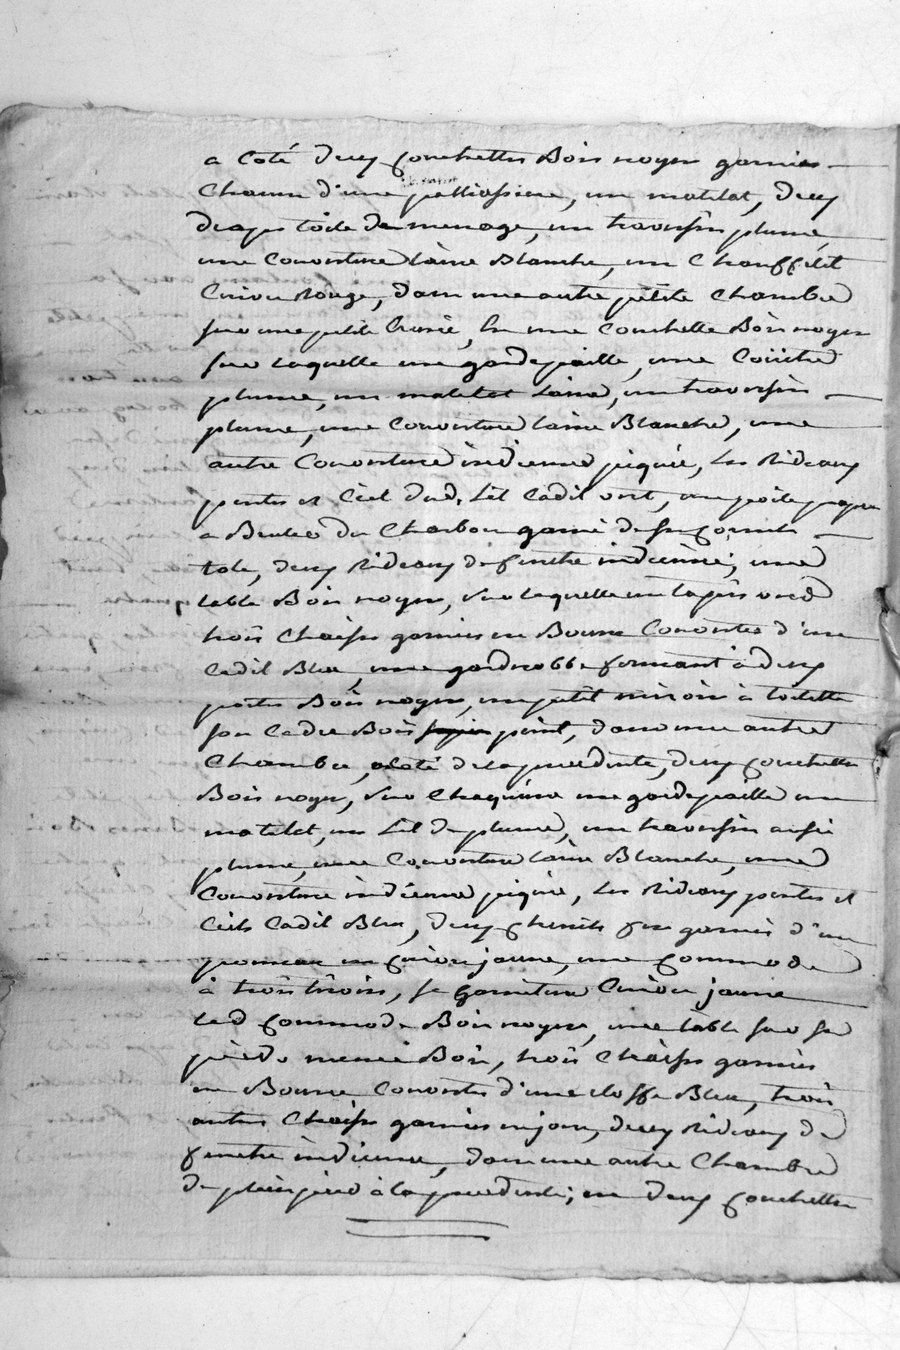 a Coté deux Couchettes Bois noyer garnies
Chacune d'une palliassiere, un matelat, deux
draps toile de menage, un traversin plume,
une Couverture laine Blanche, un Chauffelit
Cuivre Rouge, dans une autre petite Chambre
sur une petite                 une Couchette Bois noyer
sur laquelle une gardepaille, une Coüitre
plume, un matelat Laine, un traversin
plume, une Couverture laine Blanche, une
autre Couverture indienne piquée, les Rideaux
pentes et Ciel dud. Lit Cadil vert, un poile propre
a Bruler du Charbon garni de ses Cornets
tole, deux Rideaux de fenetre indienne, une
table Bois noyer, sur laquelle un tapis verd
trois Chaises garnies en Bourre Couvertes d'une
Cadil Bleu, une garderobbe fermant à deux
portes Bois noyer, un petit miroir à toilette
son Cadre Bois peint, dans une autre
Chambre, a Coté de la precedente, deux Couchettes
Bois noyer, sur Chaquune une gardepaille un
matelat, un Lit de plume, un traversin aussi
plume, une Couverture laine Blanche, une
Couverture indienne piquée, les Rideaux pentes et
Ciels Cadil Bleu, deux Chenets fer garnis d'un
pommeau en Cuivre jaune, une Commode
à trois tiroirs, sa garniture Cuivre jaune
lad. Commode Bois noyer, une table sur ses
pieds meme Bois, trois Chaises garnies
en Bourre Couvertes d'une etoffe Bleu, trois
autres Chaises garnies en jonc, deux Rideaux de
fenetre indienne, dans une autre Chambre
de plein pied à la precedente, deux Couchettes